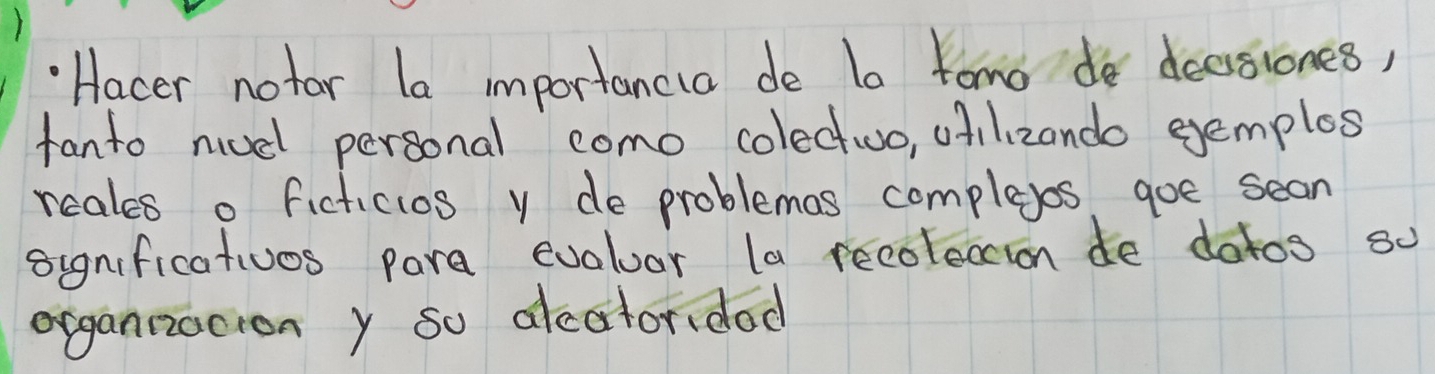 • Hacer notar la importancia de la toma de decisiones,
tanto nivel personal como colectivo, utilizando ejemplos
reales o ficticios y de problemas complejos que sean
significativos para evaluar la recoleccion de datos su
organizacion y su aleatoridad